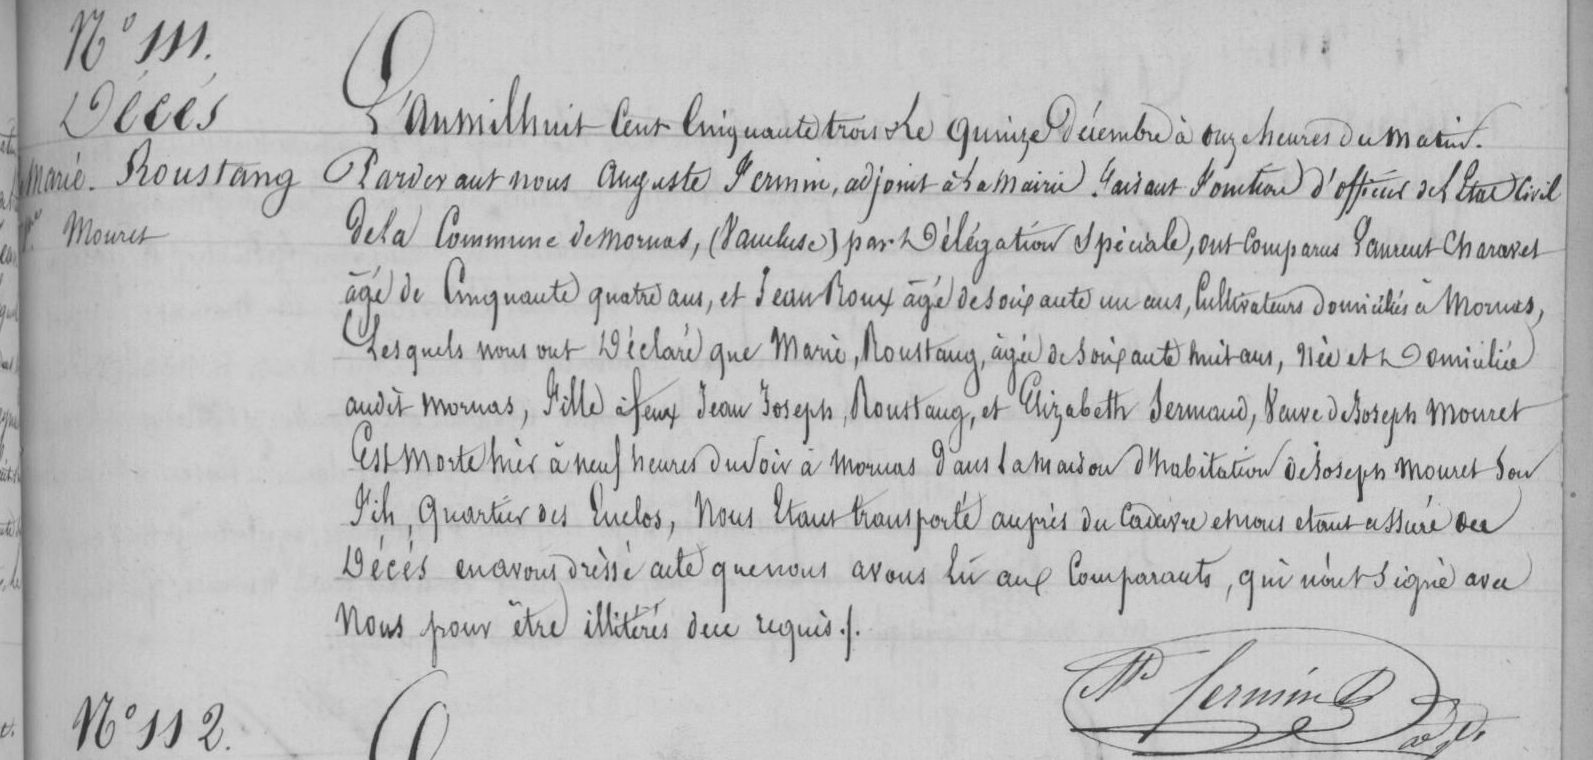 N° 111.
Décés
Marie. Roustang
Ve Mouret
L'an mil huit Cent Cinquante trois & le quinze Décembre à onze heures du matin.
Pardevant nous Auguste Fermin, adjoint à la Mairie faisant fonction d'officier de l'Etat Civil
de la Commune de mornas, (Vaucluse) par Délégation Spéciale, ont Comparus Laurent Charavet
âgé de Cinquante quatre ans, et Jean Roux âgé de soixante un ans, Cultivateurs domiciliés à Mornas,
Lesquels nous ont Déclaré que Marie, Roustang, âgée de soixante huit ans, Née et Domiciliée
audit mornas, fille à feux Jean Joseph, Roustang, et Elizabeth Sermand, Veuve de Joseph Mouret
Est Morte hier à neuf heures du soir à mornas dans la maison d'habitation de Joseph Mouret Son
Fils, Quartier des Enclos, Nous Etant transporté auprès du Cadavre et nous etant assuré du
Décés en avons drèssé acte que nous avons lû aux Comparants, qui n'ont signé avec
Nous pour être illitérés de ce requis./.
Ate fermin
adjt.
N° 112.